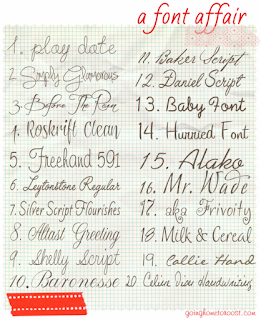 a font affair
1. play date
2. Simply Glamorous
3. Before The Rain
4. Roskrift Clean
5. Freehand 591
6. Leytonstone Regular
7. Silver Script Flourishes
8. Attast Greeting
9. Shelly Script
10. Baronesse
11. Baker Script
12. Daniel Script
13. Baby Font
14. Hurried Font
15. Alako
16. Mr. Wade
17. aka Frivoity
18. Milk & Cereal
19. Callie Hand
20. Celine Dion Handwriting
goinghometoroost.com